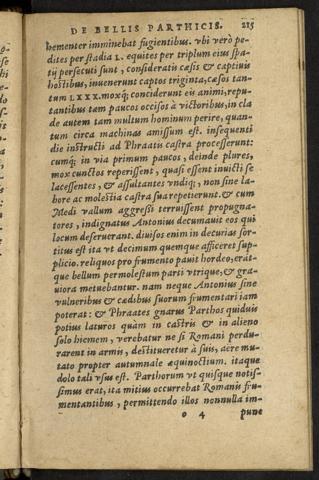 DE BELLIS PARTHICIS. 215
hementer imminebat fugientibus. vbi verò pe-
dites per stadia L. equites per triplum eius spa-
tij persecuti sunt, consideratis cæsis & captiuis
hostibus, inuenerunt captos triginta, cæsos tan-
tum LXXX. moxq́; conciderunt eis animi, repu-
tantibus tam paucos occisos à victoribus, in cla
de autem tam multum hominum perire, quan-
tum circa machinas amissum est. insequenti
die instructi ad Phraatis castra processerunt:
cumq́; in via primum paucos, deinde plures,
mox cunctos reperissent, quasi essent inuicti se
lacessentes, & assultantes vndiq;, non sine la-
bore ac molestia castra sua repetierunt. & cum
Medi vallum aggressi terruissent propugna-
tores, indignatus Antonius decumauit eos qui
locum deseruerant. diuisos enim in decurias sor-
titus est ita vt decimum quemque afficeret sup-
plicio. reliquos pro frumento pauit hordeo, erát-
que bellum permolestum paris vtrique, & gra-
uiora metuebantur. nam neque Antonius sine
vulneribus & cædibus suorum frumentari iam
poterat: & Phraates gnarus Parthos quiduis
potius laturos quam in castris & in alieno
solo hiemem, verebatur ne si Romani perdu-
rarent in armis, destitueretur à suis, aëre mu-
tato propter autumnale æquinoctium. itaque
dolo tali vsus est. Parthorum vt quisque notis-
simus erat, ita mitius occurrebat Romanis fru-
mentantibus, permittendo illos nonnulla im-
o 4 pune